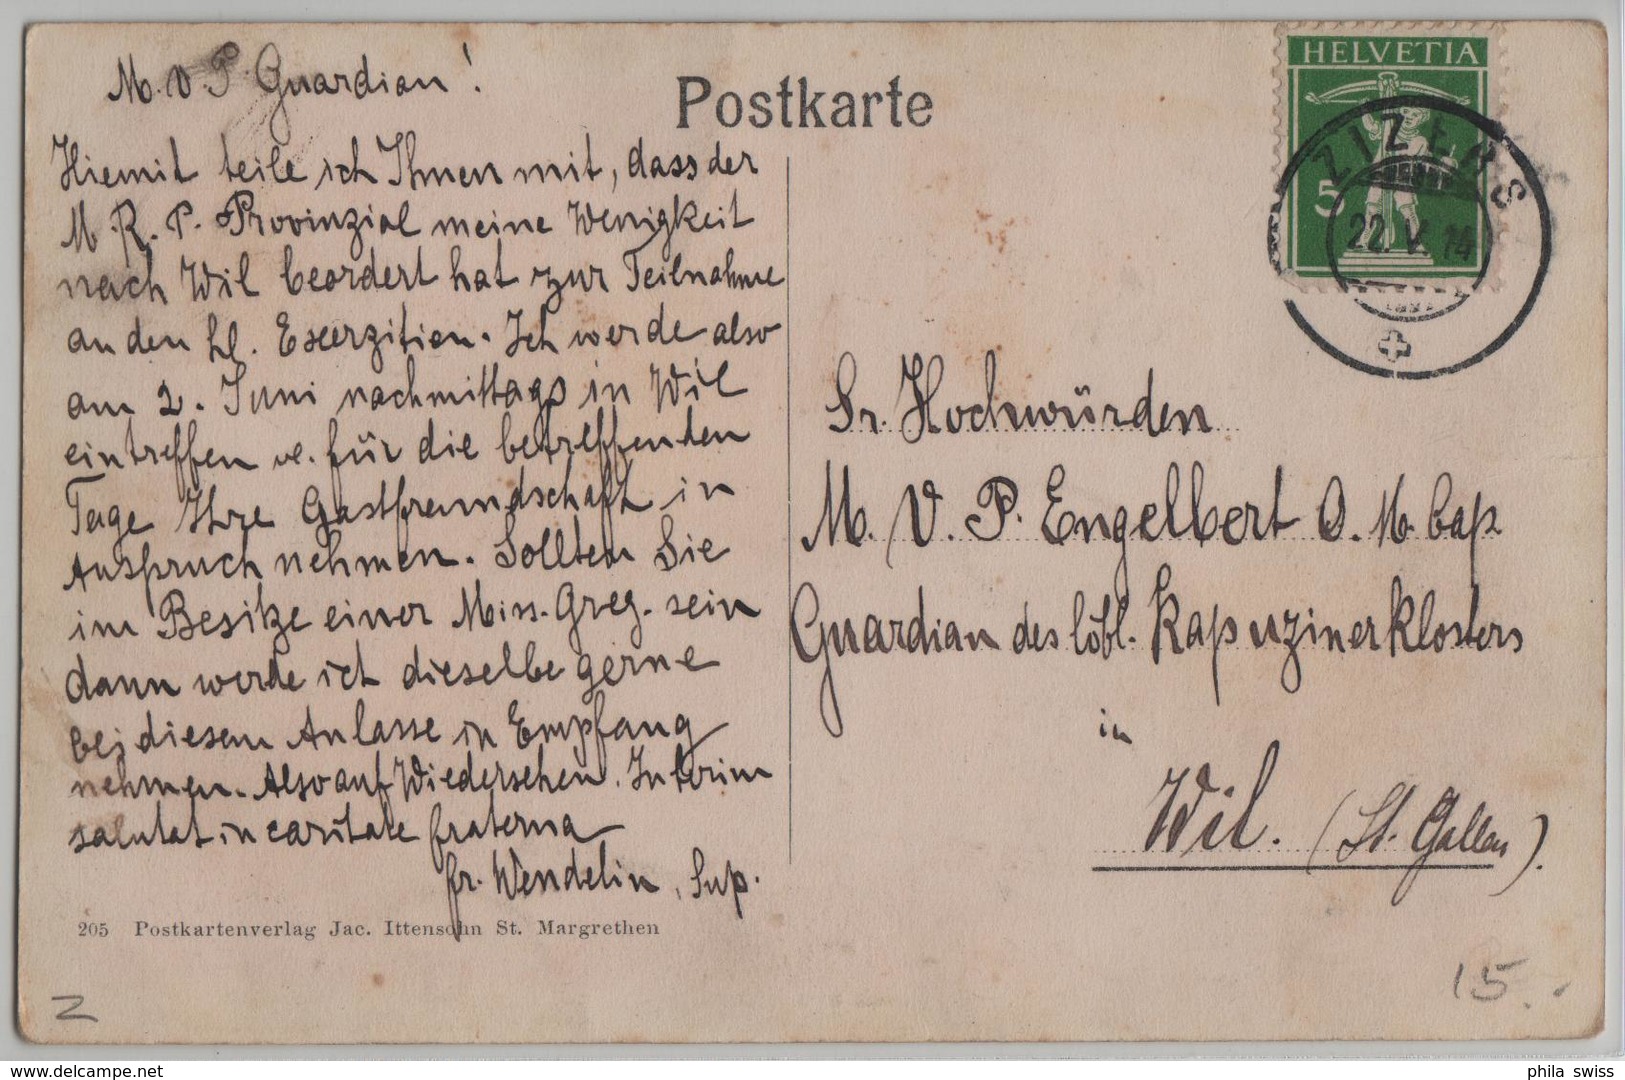 M. V. P. Guardian!
Hiemit teile ich Ihnen mit, dass der
M. R. P. Provinzial meine Wenigkeit
nach Wil beordert hat zur Teilnahme
an den hl. Exerzitien. Ich werde also
am 2. Juni nachmittags in Wil
eintreffen u. für die betreffenden
Tage Ihre Gastfreundschaft in
Anspruch nehmen. Sollten Sie
im Besitze einer Miss. Greg. sein
dann werde ich dieselbe gerne
bei diesem Anlasse in Empfang
nehmen. Also auf Wiedersehen. Interim
salutat in caritate fraterna
fr. Wendelin, Sup.
205 Postkartenverlag Jac. Ittensohn St. Margrethen
Z
Postkarte
HELVETIA
5
ZIZERS
22.V.14
Sr. Hochwürden
M. V. P. Engelbert O. M. Cap
Guardian des löbl. Kapuzinerklosters
in
Wil. (St. Gallen).
15.-
delcampe.net
phila swiss